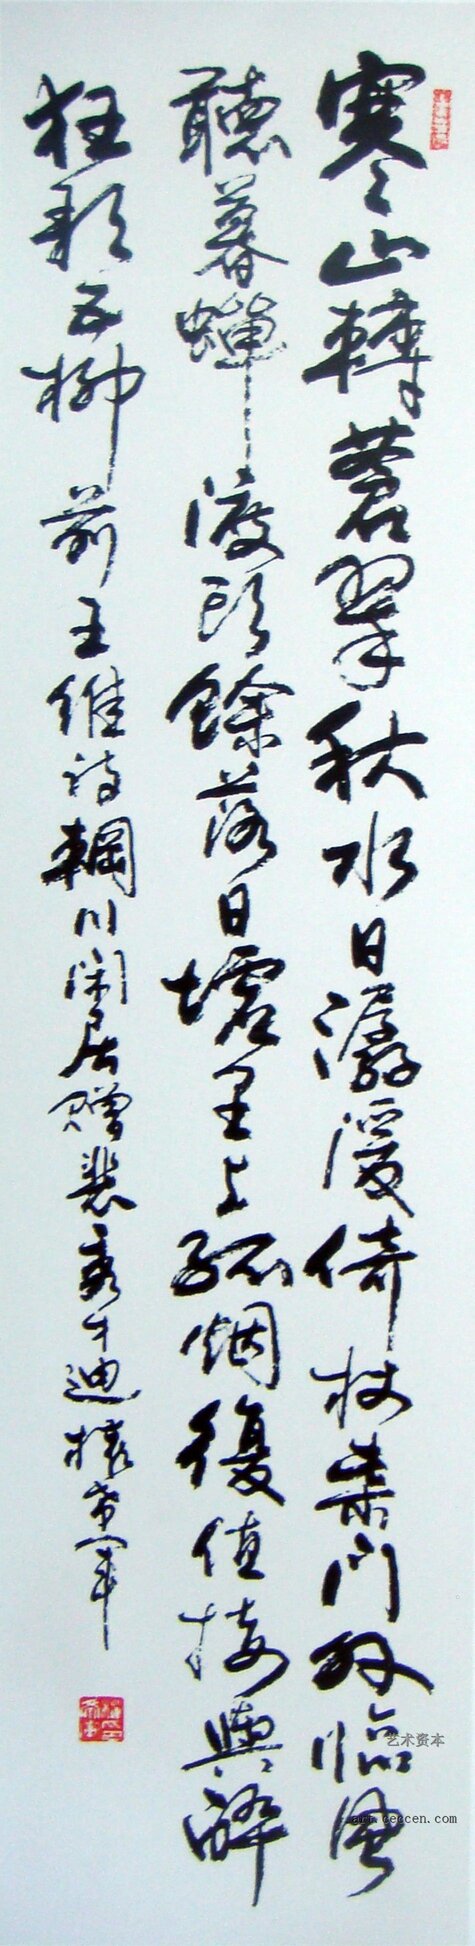 寒山轉蒼翠秋水日潺湲倚杖柴門外臨風
聽暮蟬渡頭餘落日墟里上孤烟復值接輿醉
狂歌五柳前王維詩輞川閑居贈裴秀才迪
艺术资本
art.ceccen.com